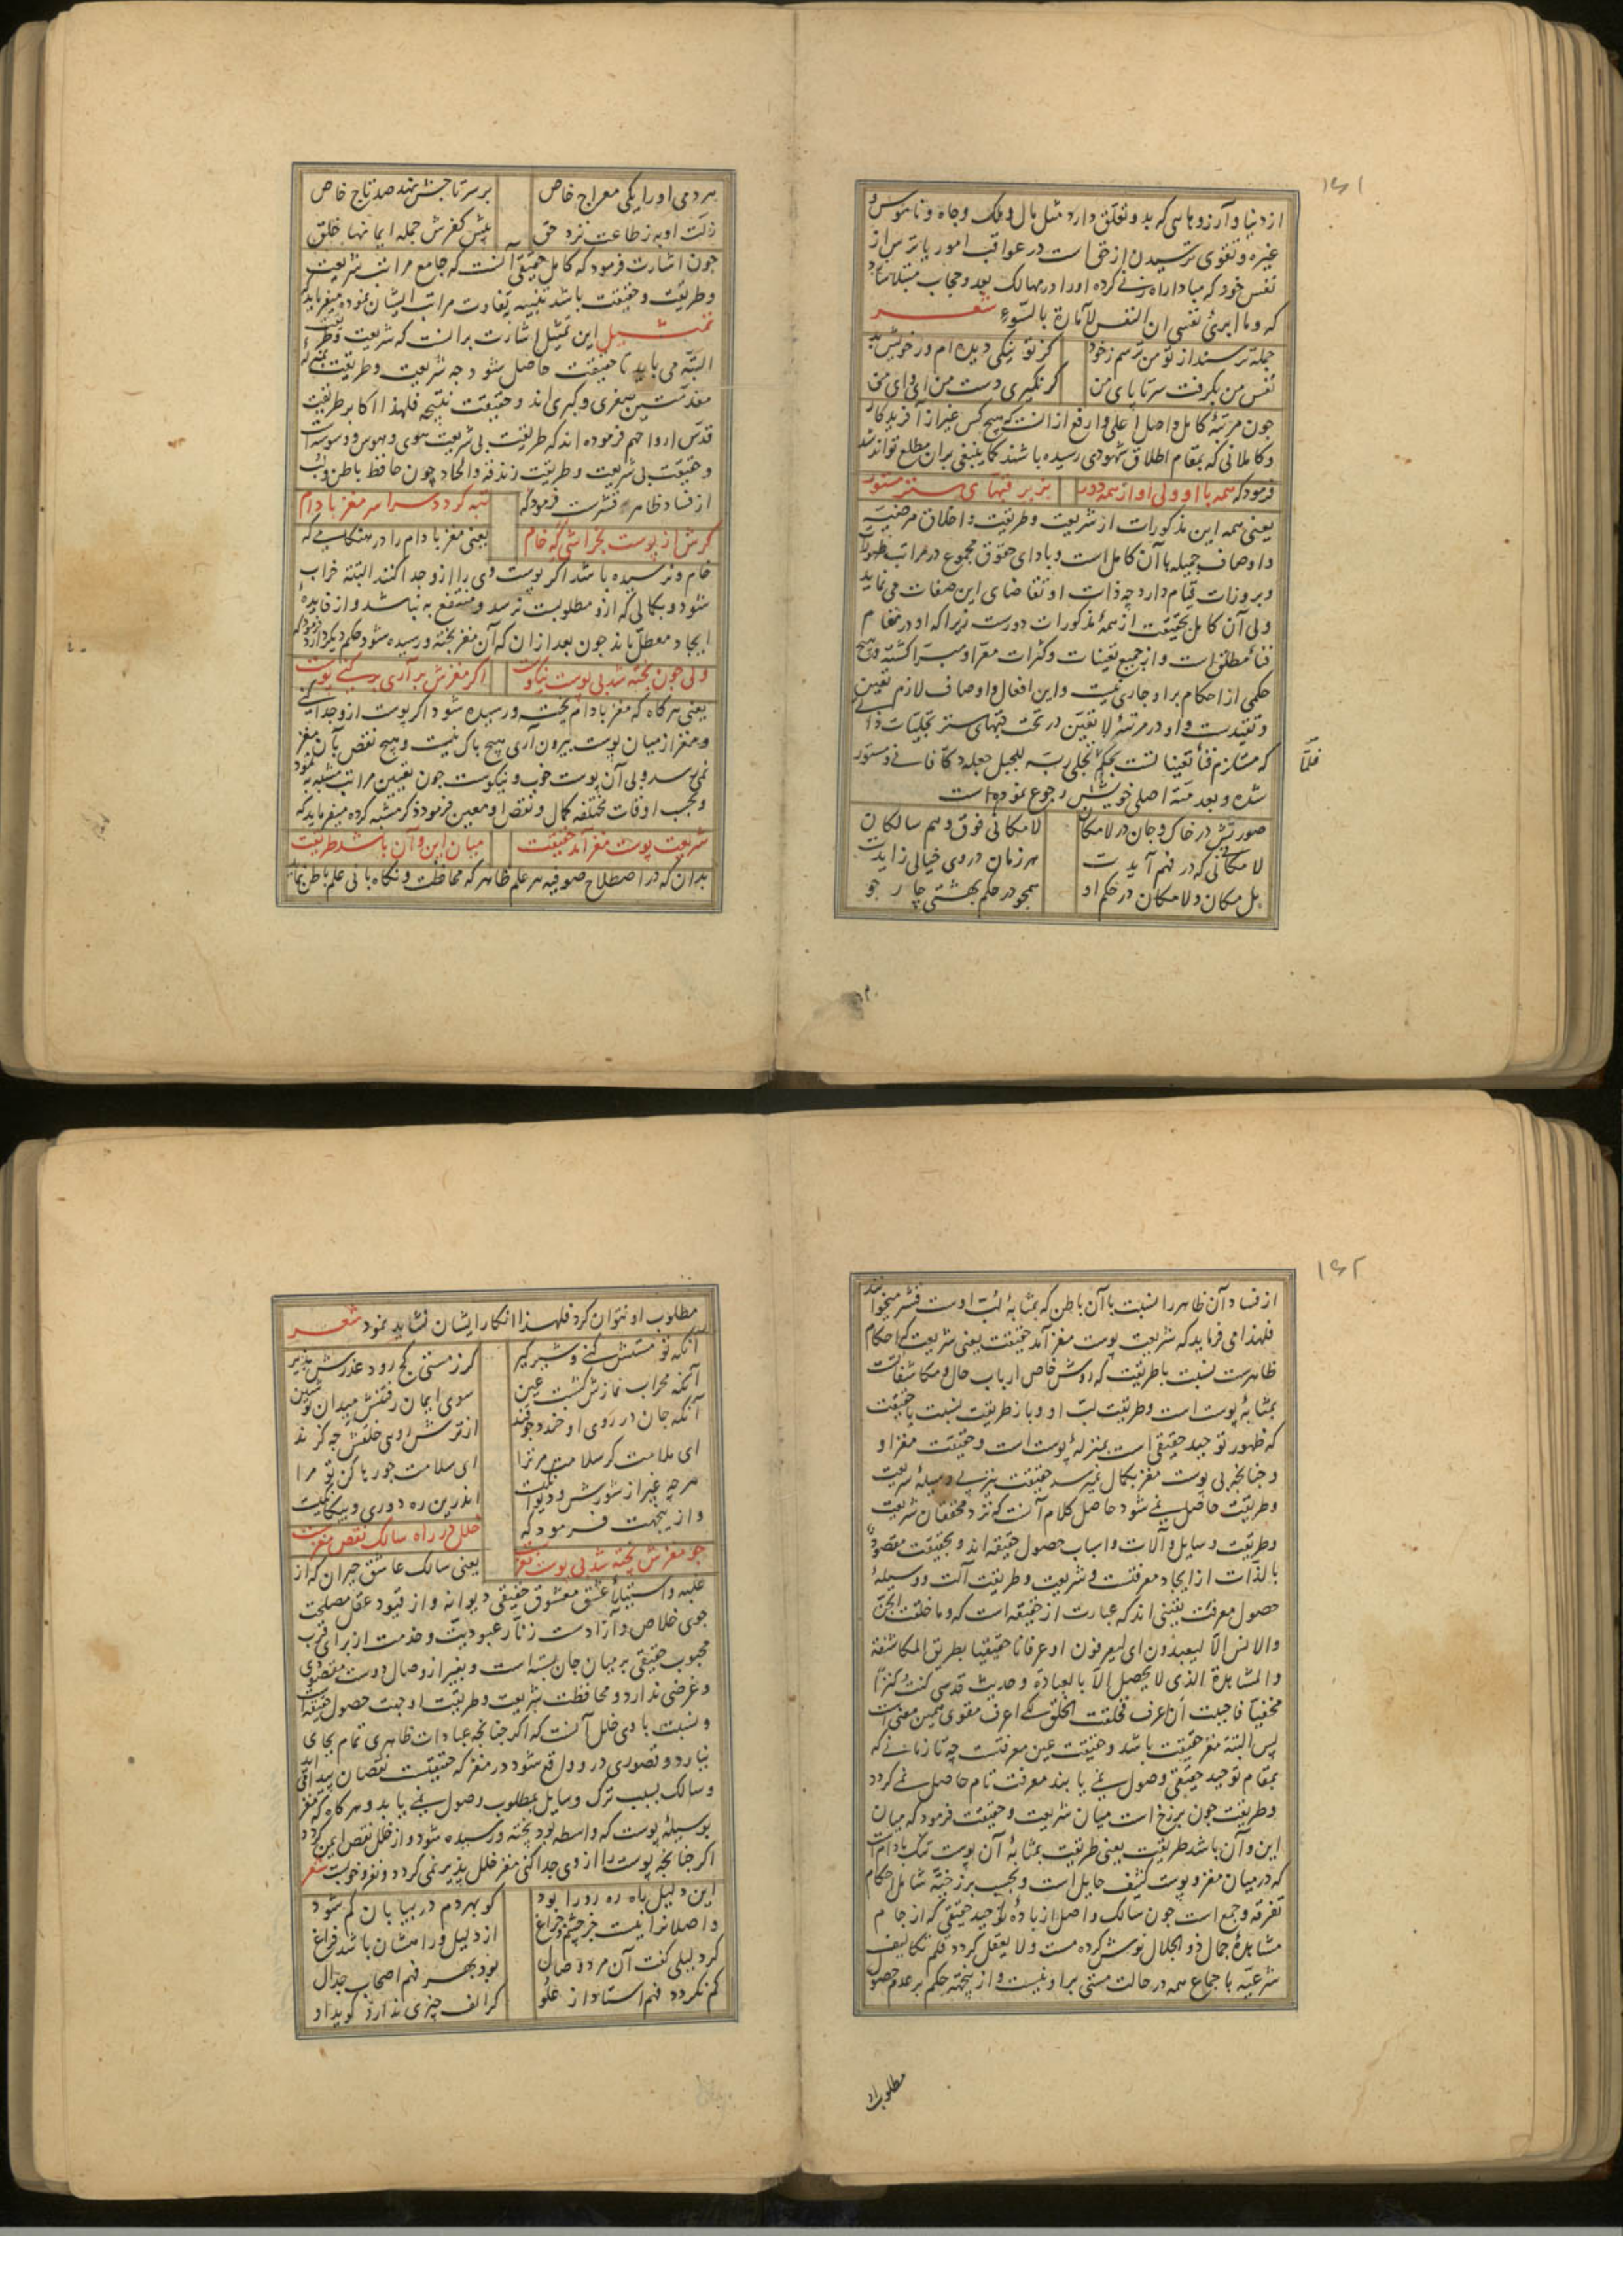 ۱۶۱
از دنیا و آرزوهایی که بدو تعلق دارد مثل مال و ملک و جاه و ناموس و
غیره و تقوی ترسیدن از خداست در عواقب امور یا ترس از
نفس خود که مبادا راه زنی کرده او را در مهالک بعد و حجاب مبتلا سازد
که و ما ابرئ نفسی ان النفس لامارة بالسوء شعر
جمله ترسند از تو من ترسم ز خود
کز تو نیکی دیده ام وز خویش بد
نفس من بگرفت سر تا پای من
گر نگیری دست من ای وای من
چون مرتبهٔ کامل واصل اعلی و ارفع از آنست که هیچ کس غیر از آفریدگار
و کاملانی که بمقام اطلاق شهودی رسیده باشند کما ینبغی بران مطلع تواند شد
فرمود که همه با او ولی او از همه دور
بزیر قبهای ستر مستور
یعنی همه این مذکورات از شریعت و طریقت و اخلاق مرضیه
و اوصاف جمیله با آن کامل است و بادای حقوق مجموع در مراتب ظهورات
و بروزات قیام دارد چه ذات او تقاضای این صفات می نماید
ولی آن کامل بحقیقت از همهٔ مذکورات دورست زیرا که او در مقام
فناء مطلق است و از جمیع تعینات و کثرات معرا و مبرا گشته و هیچ
حکمی از احکام بر او جاری نیست و این افعال و اوصاف لازم تعین
و تقیدست و او در مرتبهٔ لا تعین در تحت قبهای ستر تجلیات ذاتی
که مستلزم فناء تعینات است بحکم تجلی ربه للجبل جعله دکا فانی و مستور
فلمّا
شده و بعد مبدأ اصلی خویش رجوع نموده است
صورتش در خاک و جان در لامکان
لامکانی فوق وهم سالکان
لامکانی که در فهم آیدت
هر زمان در وی خیالی زایدت
بل مکان و لامکان در حکم او
همچو در حکم بهشتی چار جو
هر دمی او را یکی معراج خاص
بر سر تاجش نهد صد تاج خاص
زلت او به ز طاعت نزد حق
پیش کفرش جمله ایمانها خلق
چون اشارت فرمود که کامل حقیقی آنست که جامع مراتب شریعت
و طریقت و حقیقت باشد تنبیه تفاوت مراتب ایشان نموده میفرماید که
تمثیل این تمثیل اشارت برانست که شریعت و طریقت
البته می باید تا حقیقت حاصل شود چه شریعت و طریقت بمنزلهٔ
مقدمتین صغری و کبری اند و حقیقت نتیجه فلهذا اکابر طریقت
قدس ارواحهم فرموده اند که طریقت بی شریعت هوی و هوس و وسوسه است
و حقیقت بی شریعت و طریقت زندقه و الحاد چون حافظ باطن و لب
از فساد ظاهر و قشرست فرمود که
تبه گردد سراسر مغز بادام
گرش از پوست بخراشی گه خام
یعنی مغز بادام را در هنگامی که
خام و نرسیده باشد اگر پوست وی را ازو جدا کنند البته خراب
شود و بکمالی که ازو مطلوبست نرسد و منتفع به نباشد و از فایدهٔ
ایجاد معطل ماند چون بعد از آن که آن مغز پخته و رسیده شود حکم دیگر دارد فرمود که
ولی چون پخته شد بی پوست نیکوست
اگر مغزش بر آری بر کنی پوست
یعنی هر گاه که مغز بادام پخته و رسیده شود اگر پوست ازو جدا کنی
و مغز از میان پوست بیرون آری هیچ باک نیست و هیچ نقص بآن مغز
نمی رسد و بی آن پوست خوب و نیکوست چون تعیین مراتب مشبه به نمود
و بحسب اوقات مختلفه کمال و نقص او معین فرمود ذکر مشبه کرده میفرماید که
شریعت پوست مغز آمد حقیقت
میان این و آن باشد طریقت
بدان که در اصطلاح صوفیه هر علم ظاهر که محافظت و نگاه بانی علم باطن نماید
۱۶۲
از فساد آن ظاهر را نسبت با آن باطن که بمثابهٔ لب اوست قشر میخوانند
فلهذا می فرماید که شریعت پوست مغز آمد حقیقت یعنی شریعت که احکام
ظاهرست نسبت با طریقت که روش خاص ارباب حال و مکاشفات است
بمثابهٔ پوست است و طریقت لب او و باز طریقت نسبت با حقیقت
که ظهور توحید حقیقی است بمنزلهٔ پوست است و حقیقت مغز او
و چنانچه بی پوست مغز بکمال نمیرسد حقیقت نیز بی وسیلهٔ شریعت
و طریقت حاصل نمی شود حاصل کلام آنست که نزد محققان شریعت
و طریقت وسایل و آلات و اسباب حصول حقیقه اند و بحقیقت مقصود
بالذات از ایجاد معرفتست و شریعت و طریقت آلت و وسیلهٔ
حصول معرفت یقینی اند که عبارت از حقیقه است که و ما خلقت الجن
والانس الا لیعبدون ای لیعرفون او عرفانا حقیقیا بطریق المکاشفة
والمشاهدة الذی لا یحصل الا بالعبادة و حدیث قدسی کنت کنزا
مخفیا فاحببت ان اعرف فخلقت الخلق لکی اعرف مقوی همین معنی است
پس البته مغز حقیقت باشد و حقیقت عین معرفتست چه تا زمانی که
بمقام توحید حقیقی وصول نمی یابند معرفت تام حاصل نمی گردد
و طریقت چون برزخ است میان شریعت و حقیقت فرمود که میان
این و آن باشد طریقت یعنی طریقت بمثابهٔ آن پوست تنک بادام است
که در میان مغز و پوست کثیف حایل است و بحسب برزخیة شامل احکام
تفرقه و جمع است چون سالک واصل از بادهٔ توحید حقیقی که از جام
مشاهدهٔ جمال ذو الجلال نوش کرده مست و لا یعقل گردد قلم تکالیف
شرعیه باجماع همه در حالت مستی بر او نیست و از ینجهته حکم بر عدم حصول
مطلوب او
مطلوب او نتوان کرد فلهذا انکار ایشان نشاید نمود شعر
آنکه تو مستش کنی و شیر گیر
گر ز مستی کج رود عذرش پذیر
آنکه محراب نمازش گشت عین
سوی ایمان رفتنش میدان تو شین
آنکه جان در روی او خندد چو قند
از ترش رویی خلقش چه گزند
ای ملامت گر سلامت مر ترا
ای سلامت جو رها کن تو مرا
هر چه غیر از شورش و دیوانگیست
اندرین ره دوری و بیگانگیست
و ازینجهت فرمود که
خلل در راه سالک نقص مغزست
چو مغزش پخته شد بی پوست نغزست
یعنی سالک عاشق حیران که از
غلبه و استیلاء عشق معشوق حقیقی دیوانه و از قیود عقل مصلحت
جوی خلاص و آزادست زنار عبودیت و خدمت از برای قرب
محبوب حقیقی بر میان جان بسته است و بغیر از وصال دوست مقصودی
و غرضی ندارد و محافظت شریعت و طریقت او جهت حصول حقیقه است
و نسبت با وی خلل آنست که اگر چنانچه عبادات ظاهری تمام بجای
نیارد و قصوری درو واقع شود در مغز که حقیقت نقصان پیدا آید
و سالک بسبب ترک وسایل بمطلوب وصول نمی یابد و هر گاه که مغز
بوسیلهٔ پوست که واسطه بود پخته و رسیده شود و از خلل نقص ایمن گردد
اگر چنانچه پوست را از وی جدا کنی مغز خلل پذیر نمی گردد و نغز و خوبست شعر
این دلیل راه ره رو را بود
کو بهر دم در بیابان گم شود
واصلانرا نیست جز چشم و چراغ
از دلیل و راهشان باشد فراغ
گر دلیلی گفت آن مرد وصال
بود بهر فهم اصحاب جدال
کم نگردد فهم استاد از علو
گر الف چیزی ندارد گوید او